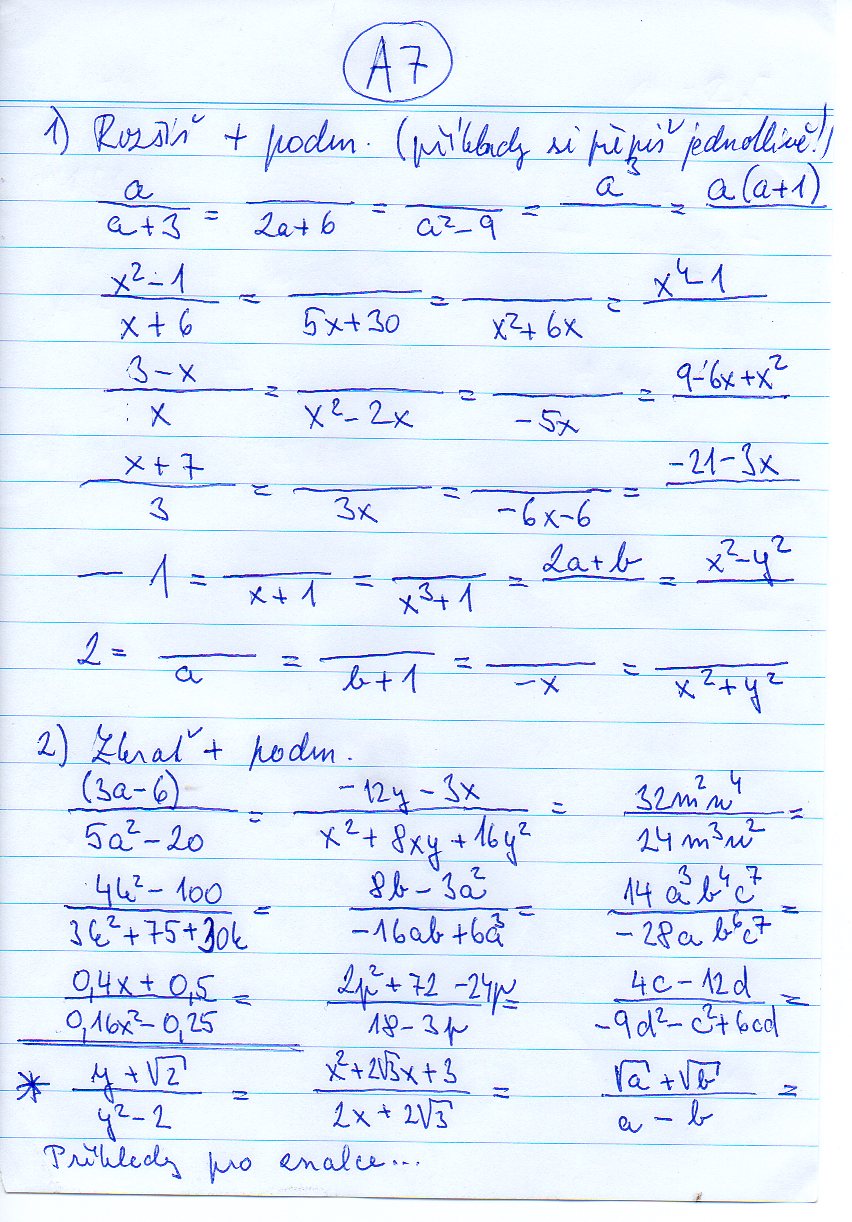 A7
1) Rozšiř + podm. (příklady si přepiš jednotlivě!)
a/(a+3) = /(2a+6) = /(a²-9) = a³/ = a(a+1)/
(x²-1)/(x+6) = /(5x+30) = /(x²+6x) = (x⁴-1)/
(3-x)/x = /(x²-2x) = /(-5x) = (9-6x+x²)/
(x+7)/3 = /(3x) = /(-6x-6) = (-21-3x)/
— 1 = /(x+1) = /(x³+1) = (2a+b)/ = (x²-y²)/
2 = /a = /(b+1) = /(-x) = /(x²+y²)
2) Zkrať + podm.
(3a-6)/(5a²-20) = (-12y-3x)/(x²+8xy+16y²) = 32m²n⁴/(24m³n²) =
(4k²-100)/(3k²+75+30k) = (8b-3a²)/(-16ab+6a³) = 14a³b⁴c⁷/(-28ab⁶c⁷) =
(0,4x+0,5)/(0,16x²-0,25) = (2p²+72-24p)/(18-3p) = (4c-12d)/(-9d²-c²+6cd) =
* (y+√2)/(y²-2) = (x²+2√3x+3)/(2x+2√3) = (√a+√b)/(a-b) =
Příklady pro znalce...